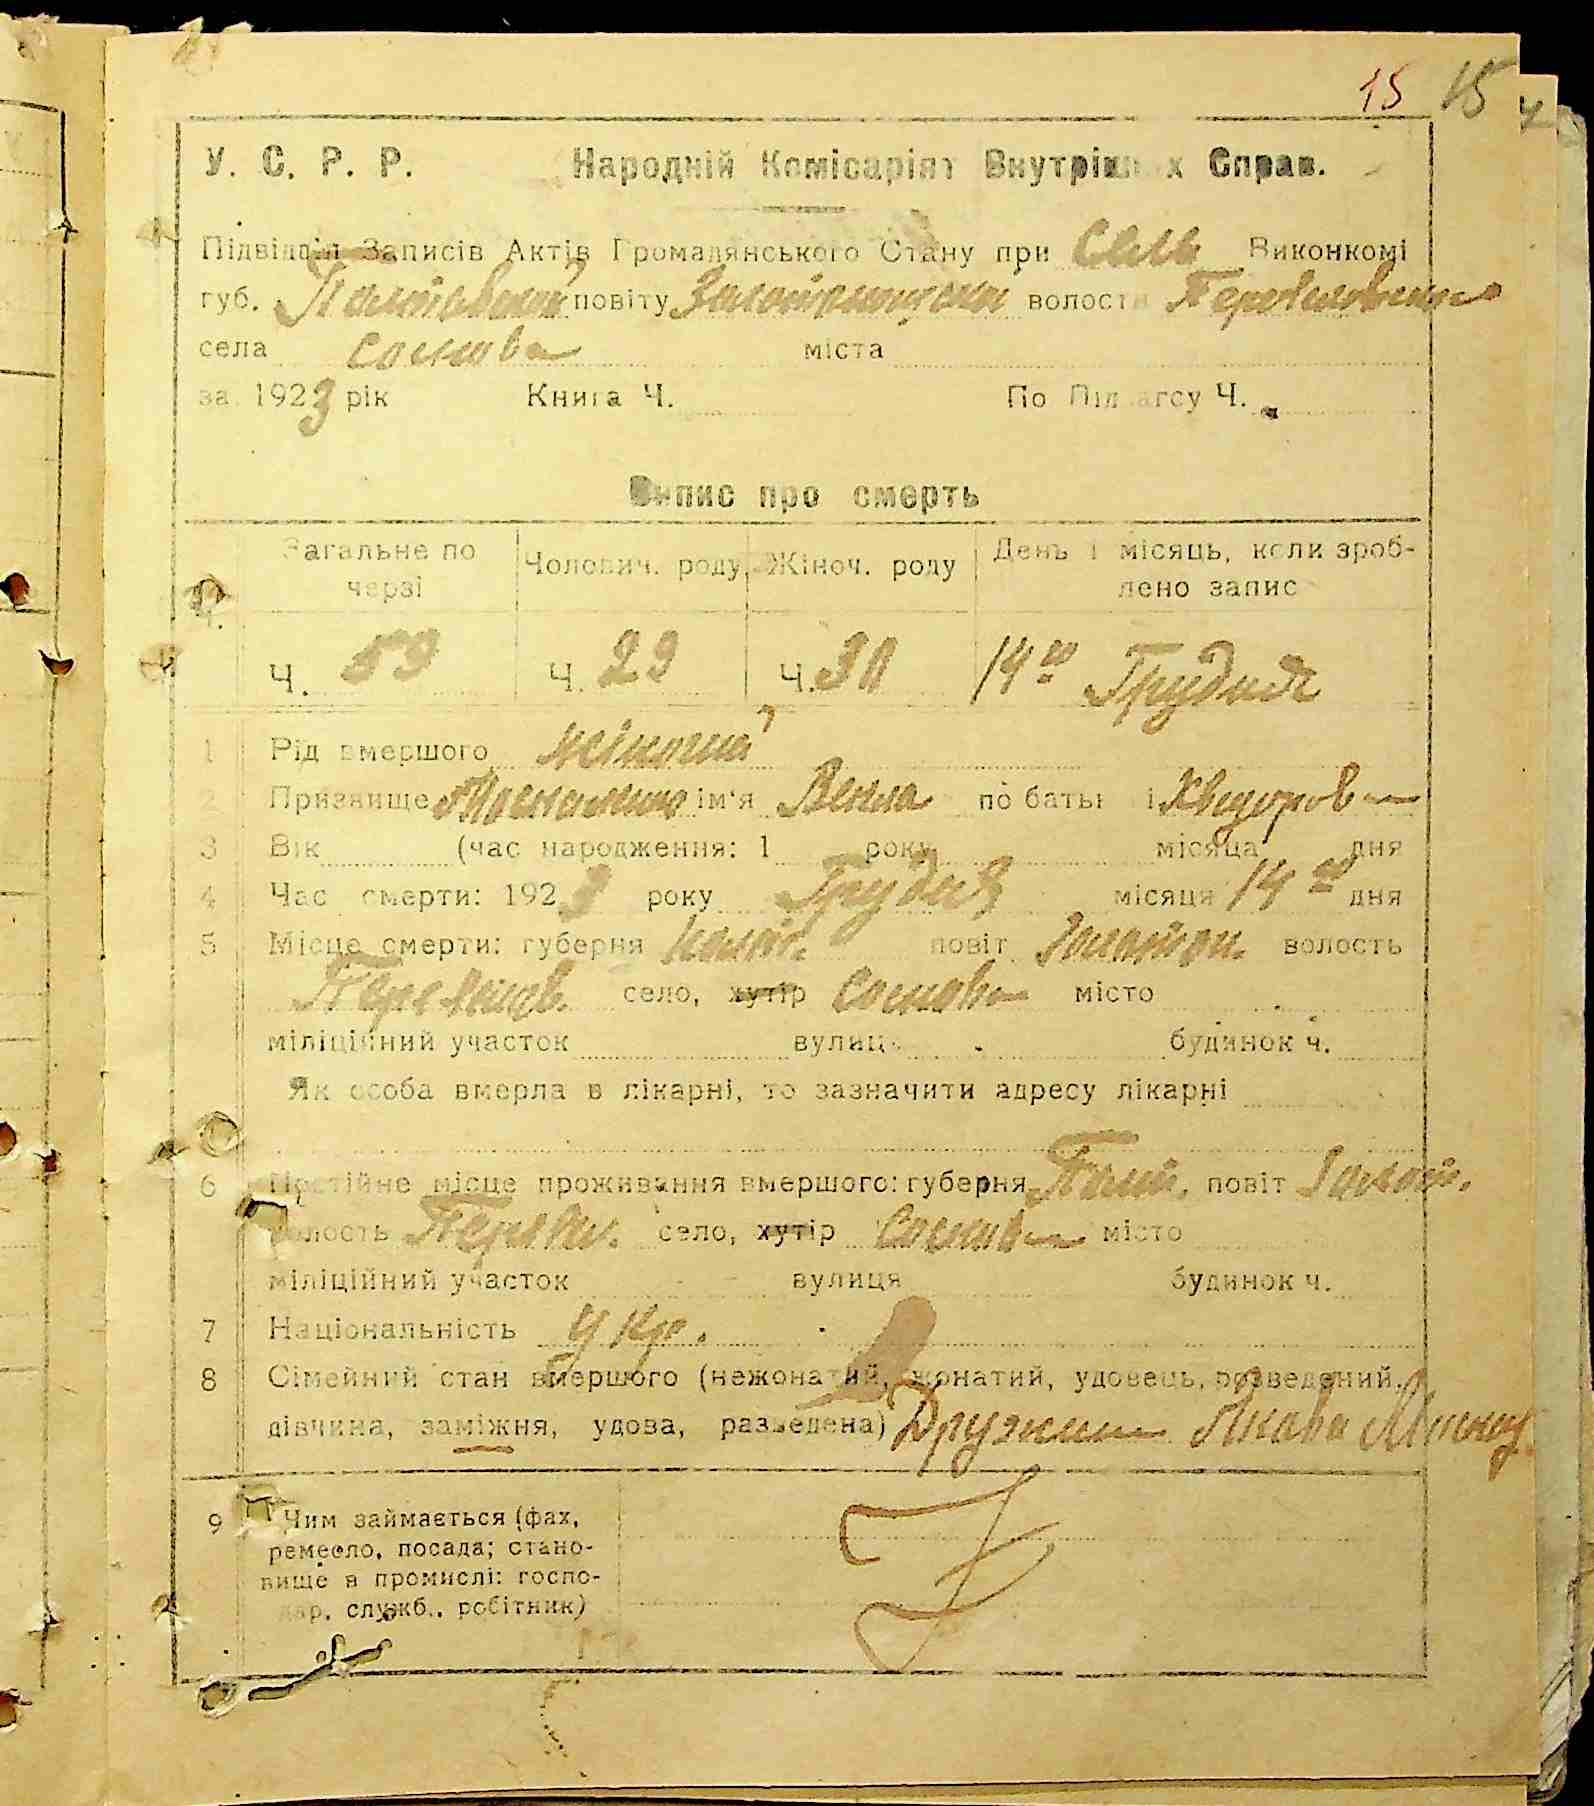 15 15
У. С. Р. Р. Народній Комісаріят Внутрішніх Справ.
Підвідділ Записів Актів Громадянського Стану при Сель Виконкомі
губ. Полтавской повіту волости
села міста
за 1923 рік Книга Ч. По Підзагсу Ч.
Випис про смерть
Загальне по Чолович. роду Жіноч. роду День і місяць, коли зроб-
черзі лено запис
Ч. 59 Ч. 29 Ч. 30 14го Грудня
1 Рід вмершого жіночий
2 Призвище ім'я Векла по батькові Хведоровн
3 Вік (час народження: 1 року місяця дня
4 Час смерти: 1923 року Грудня місяця 14го дня
5 Місце смерти: губерня Полт. повіт Золотон. волость
село, хутір місто
міліційний участок вулиця будинок ч.
Як особа вмерла в лікарні, то зазначити адресу лікарні
6 Постійне місце проживання вмершого: губерня Полт. повіт Золот.
волость село, хутір місто
міліційний участок вулиця будинок ч.
7 Національність Укр.
8 Сімейний стан вмершого (нежонатий, жонатий, удовець, розведений,
дівчина, заміжня, удова, разведена) Дружина Якова
9 Чим займається (фах,
ремесло, посада; стано-
вище в промислі: госпо-
дар, служб., робітник)